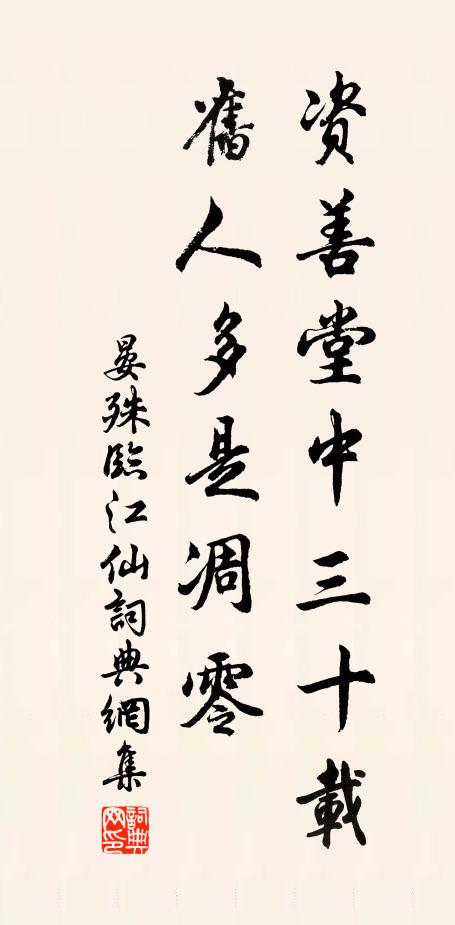 資善堂中三十載
舊人多是凋零
晏殊臨江仙詞典網集
詞典网印